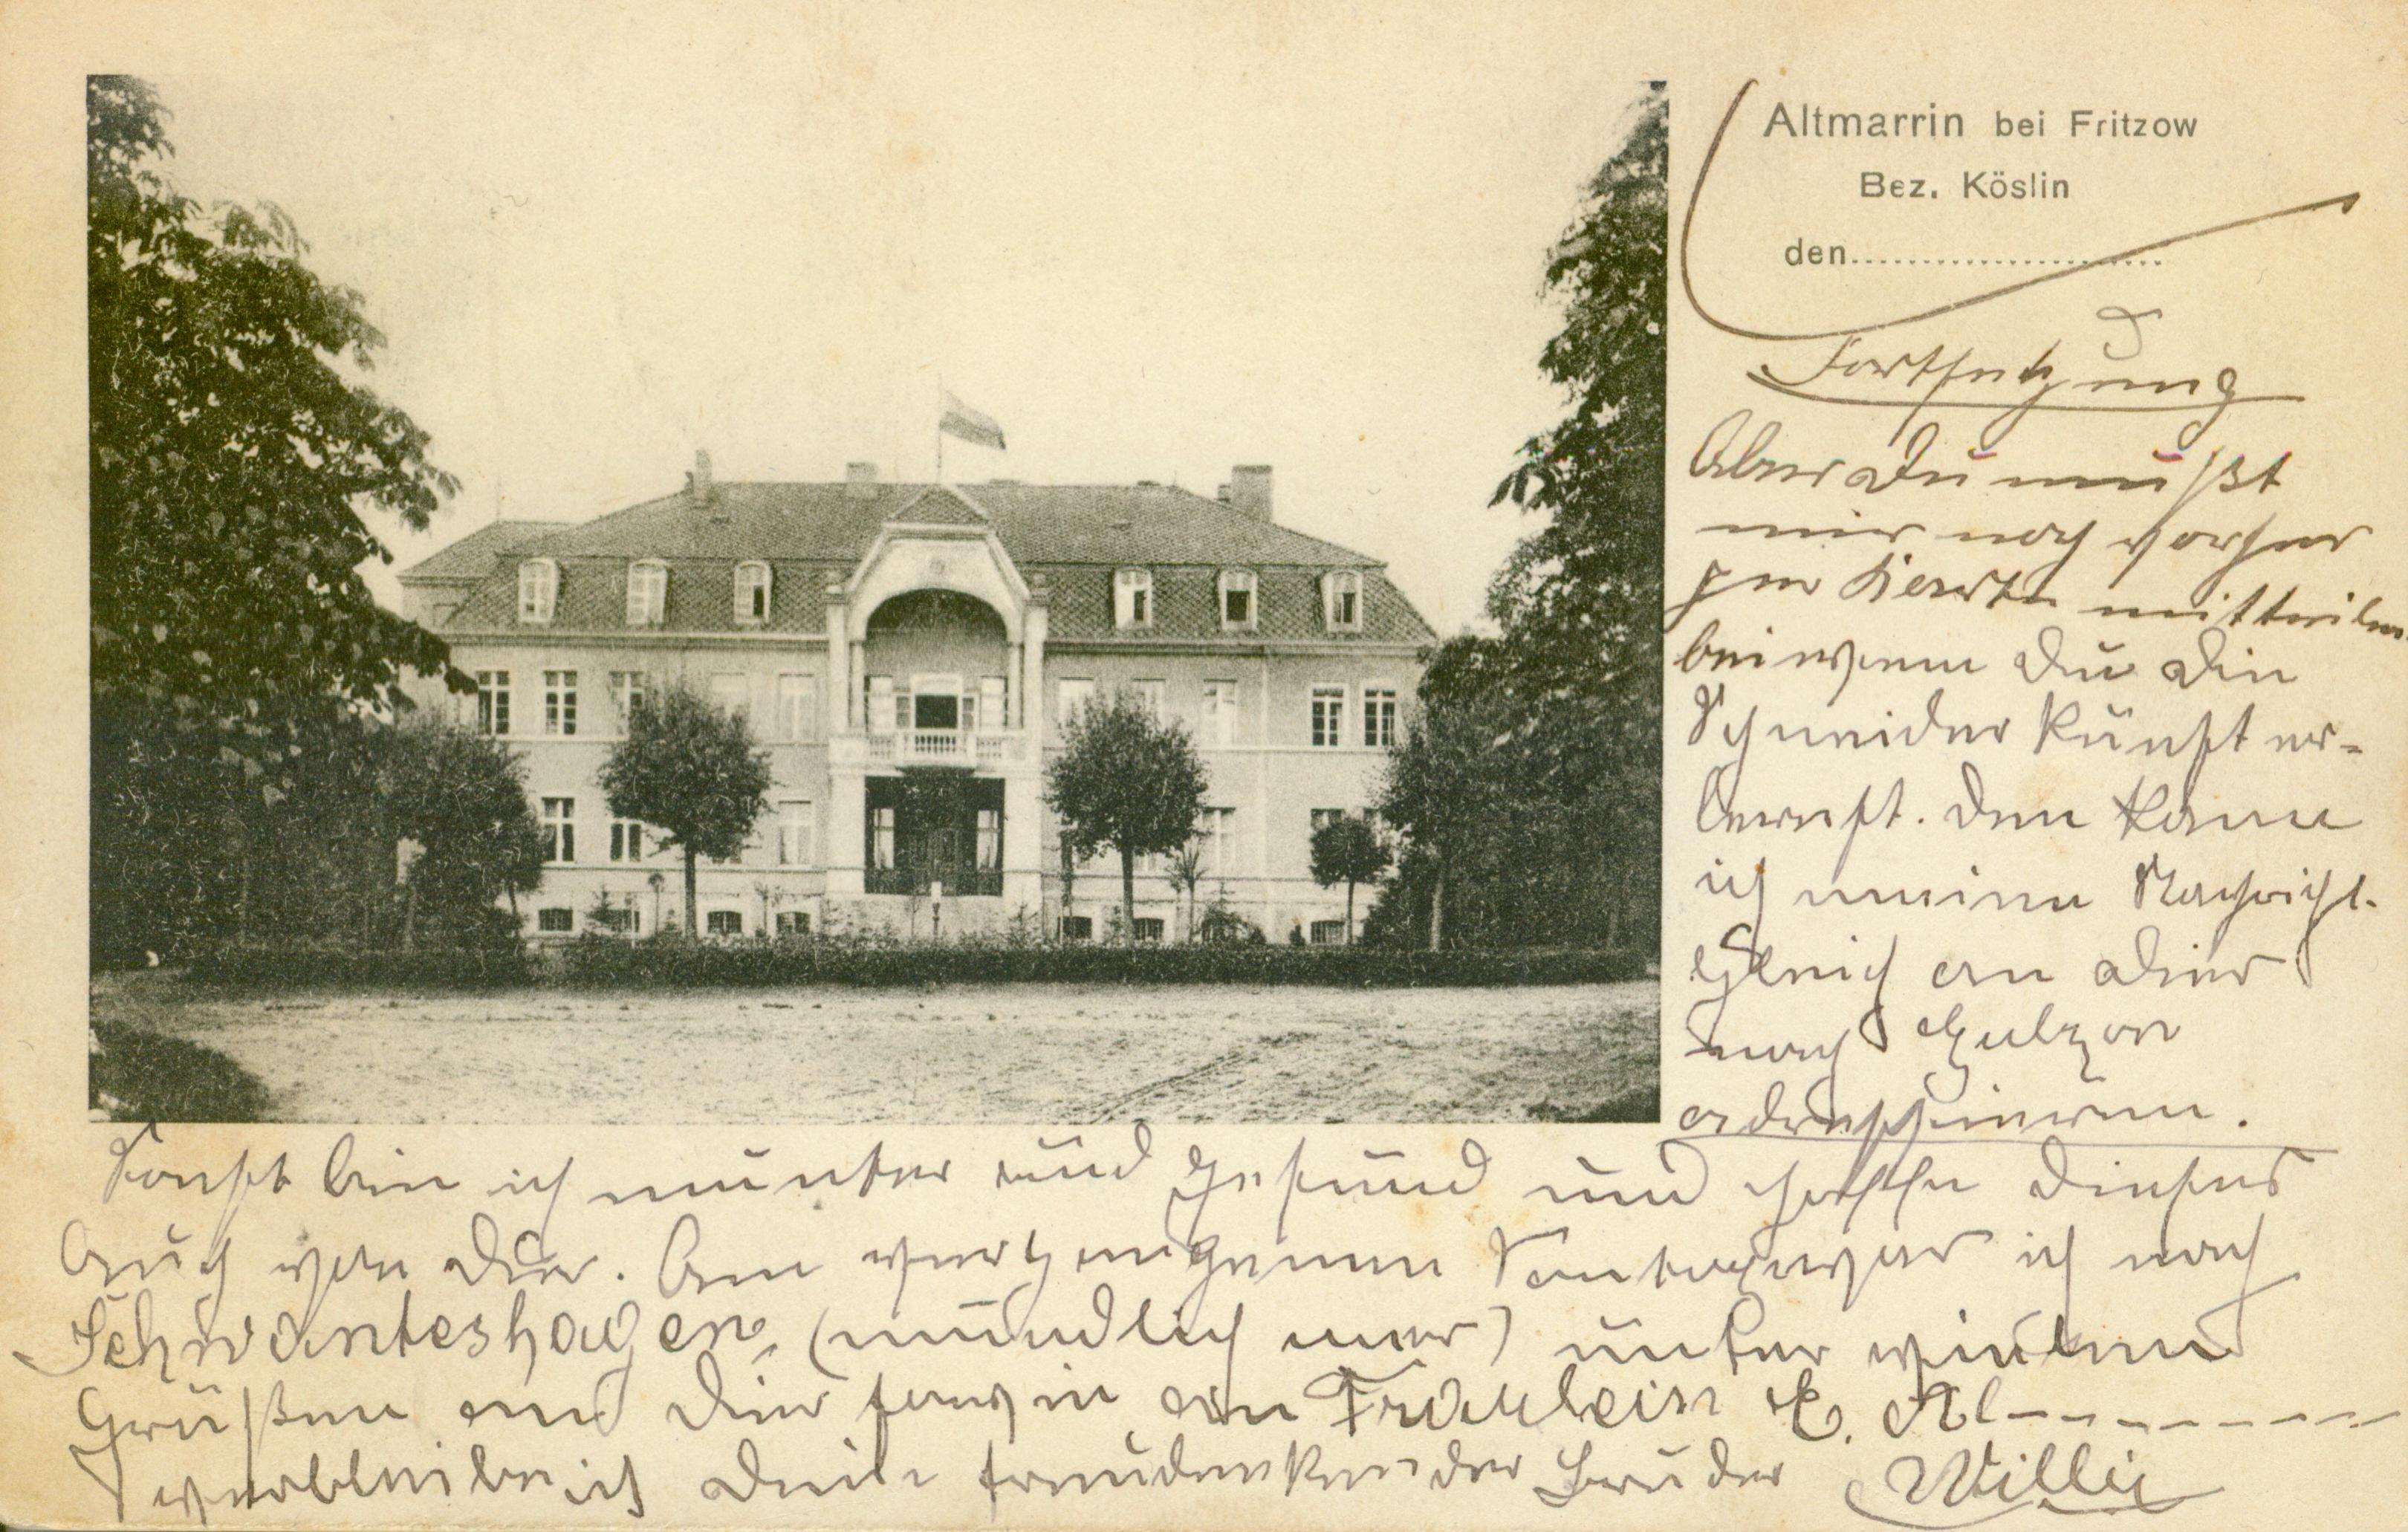 Altmarrin bei Fritzow
Bez. Köslin
den......................
Fortsetzung
Aber Du mußt
mir noch vorher
per Karte mitteilen
bei wem Du die
Schneider Kunst er-
lernst. den kann
ich meine Nachricht
gleich an dier
nach Gülzow
adressieren.
Sonst bin ich munter und gesund und hoffe dieses
auch von dier. Am vergangenen Sontag war ich nach
Schwanteshagen (mündlich mer) unter vielen
Grüßen and dier sowie an Fräulein E. Al--------
verbleibe ich dein Bruder Willi